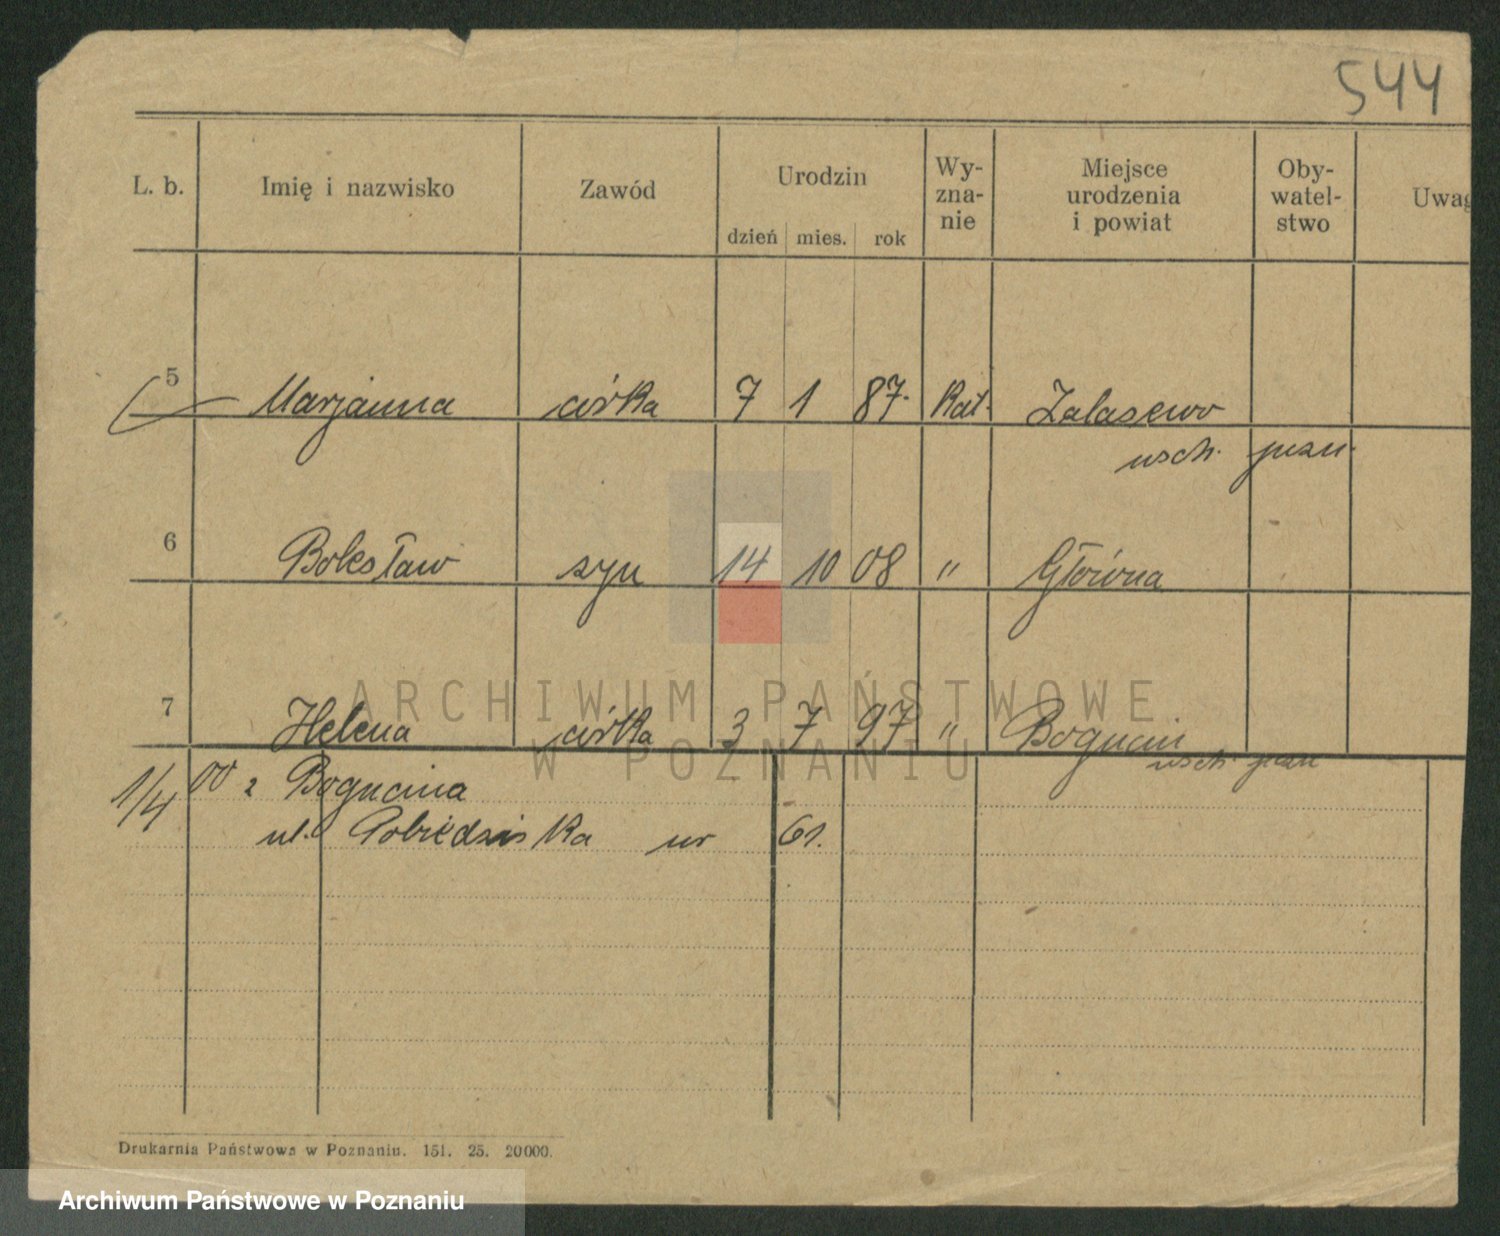 544
L. b. Imię i nazwisko Zawód Urodzin Wy- zna- nie Miejsce urodzenia i powiat Oby- watel- stwo Uwag
dzień mies. rok
5 Marjanna córka 7 1 87. Kat. Zalasewo
wsch. pozn.
6 Bolesław syn 14 10 08 " Główna
ARCHIWUM PAŃSTWOWE
W POZNANIU
7 Helena córka 3 7 97 " Bogucin
wsch. pozn
1/4 00 z Bogucina
ul. Pobiedziska nr 61.
Drukarnia Państwowa w Poznaniu. 151. 25. 20000.
Archiwum Państwowe w Poznaniu